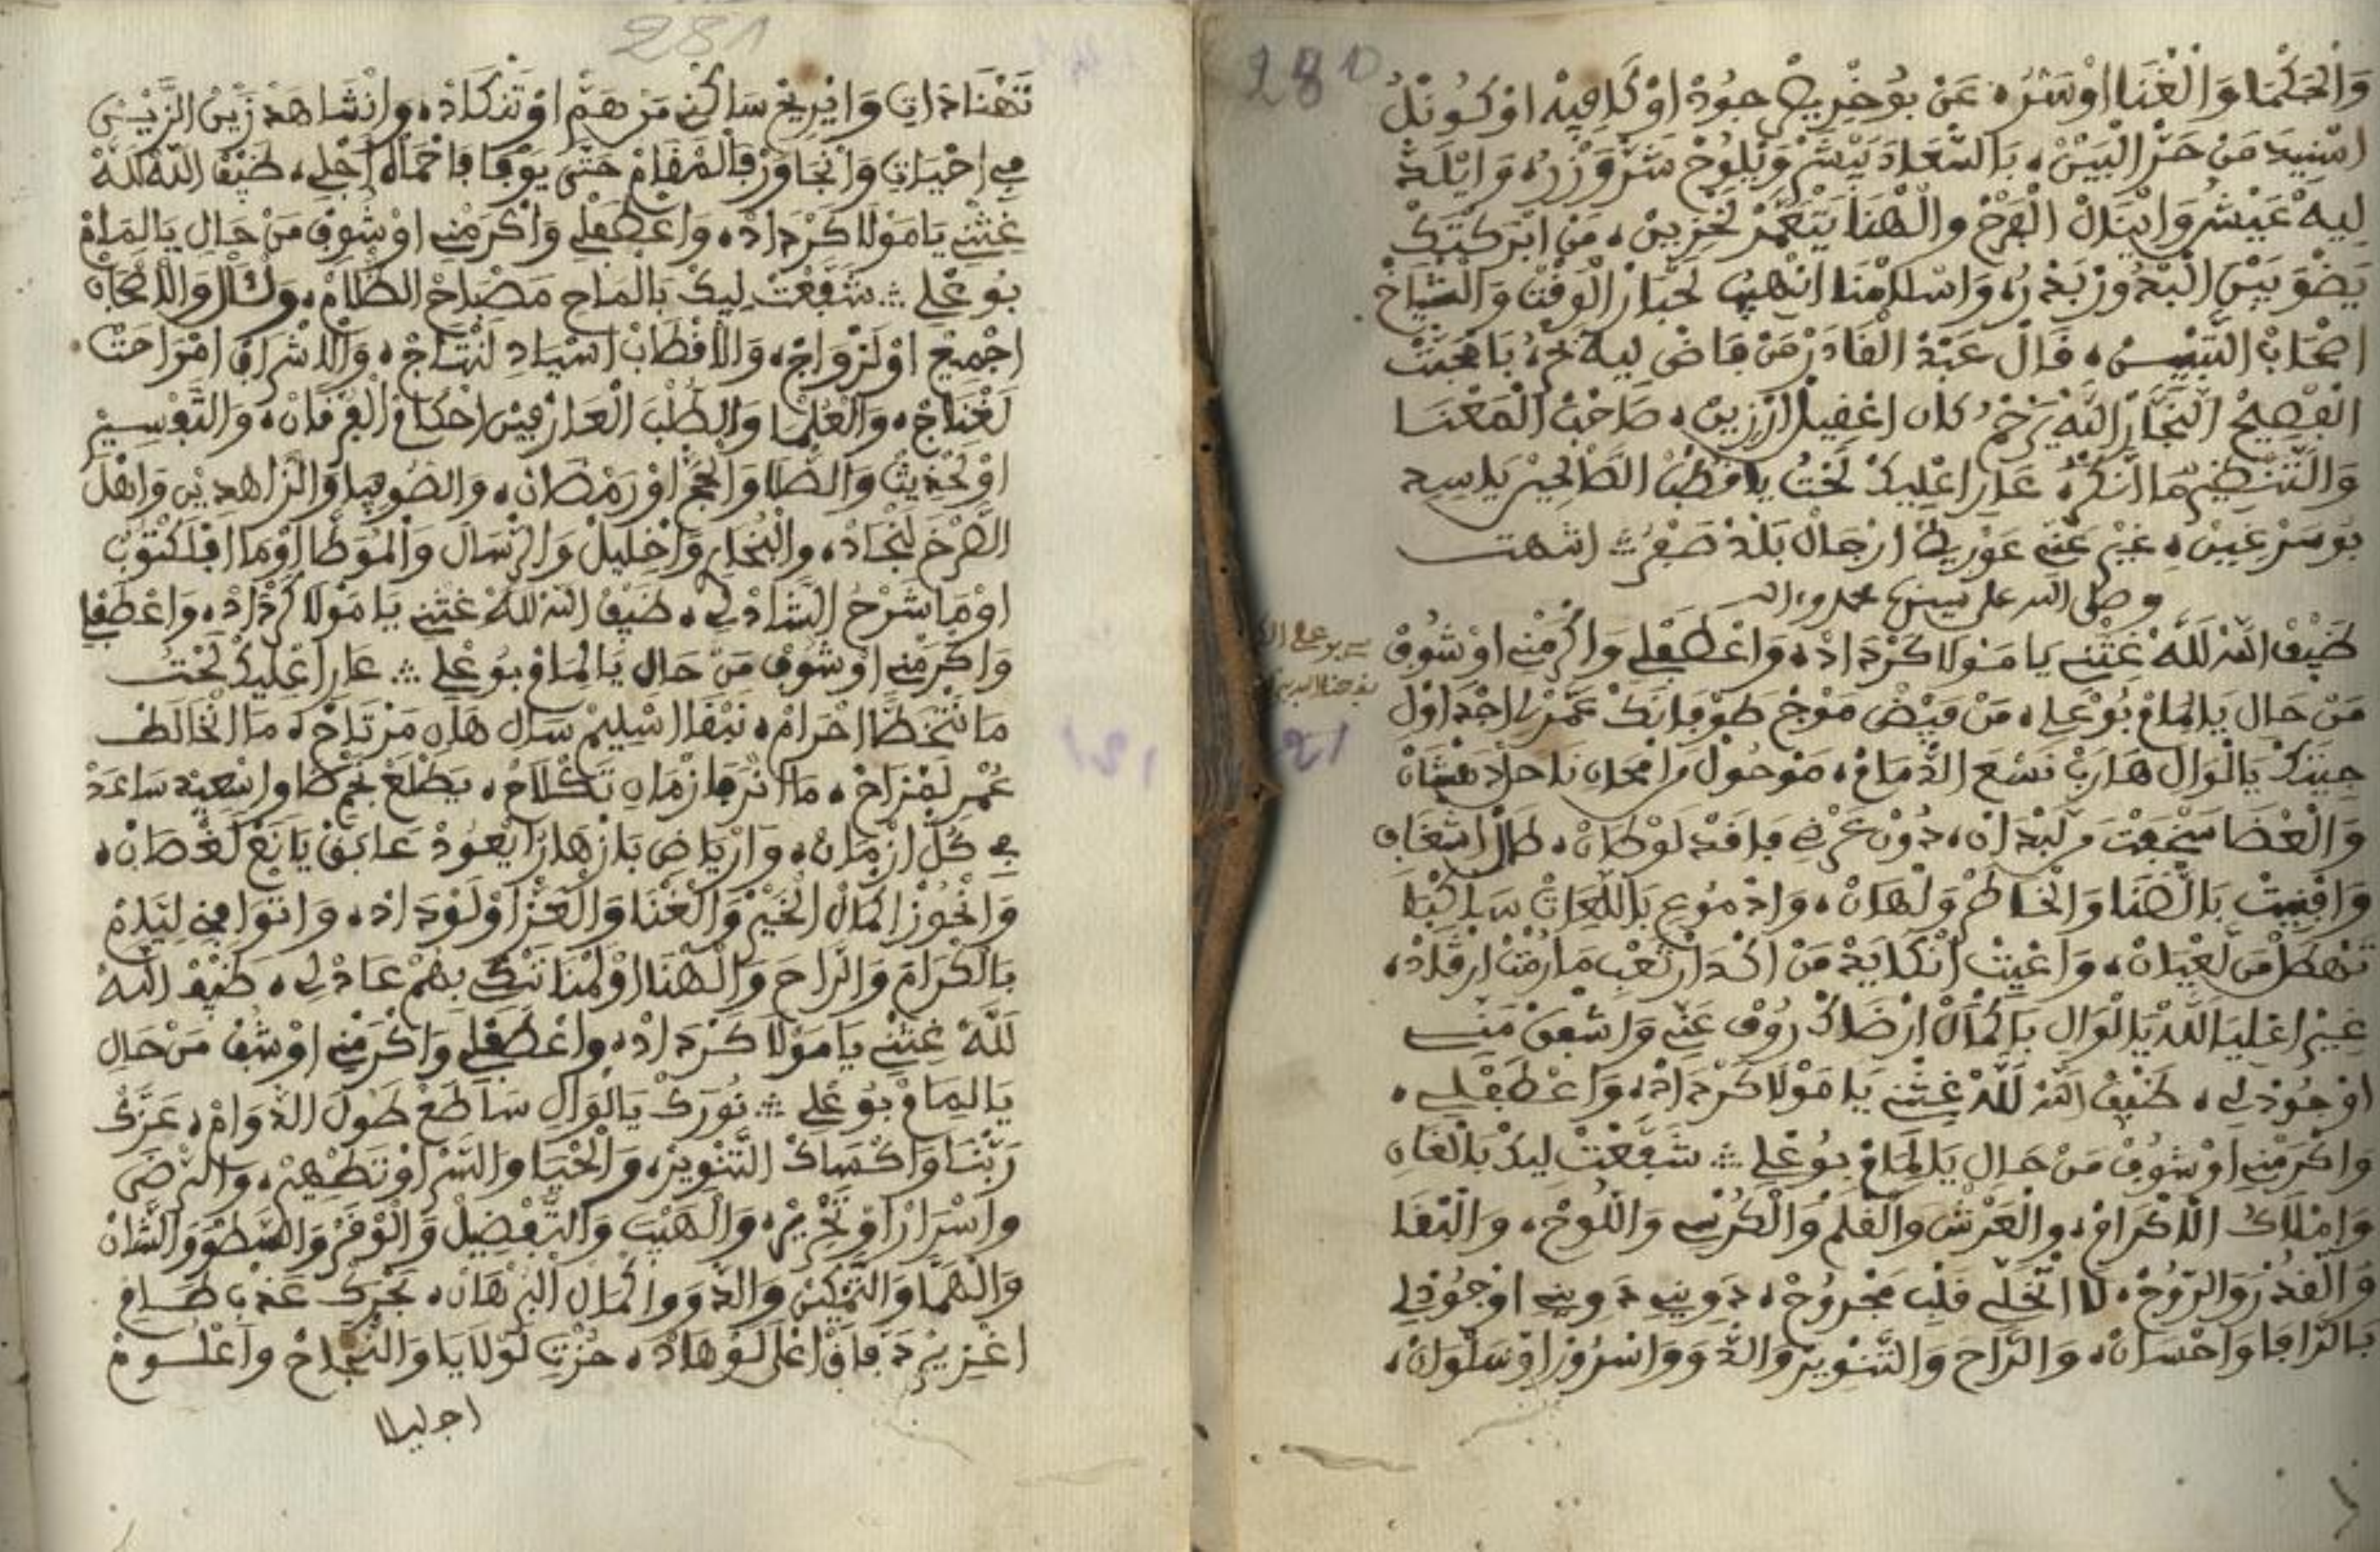 280
وَالْحَكْمَا وَالْغْنَا اوْسَرُّه عَنْ بُوخْرِيصْ جُودْ اوْكَافِيهْ اوْكُونْلُ
اسْنِيدَ مَنْ حَرّْ الْبَيْنْ، بَالسَّعَادَ يَبْشَرْ وَيْلُوحْ سَرّْ وَزْرُه وَايْلَدّْ
لِيهْ عَيْشُ وَايْنَالْ الْفَرْحْ وَالْهْنَا يَتْعَمَّرْ لَحْزِينْ، مَنْ ابْرَكْتَكْ
يَضْوَى بَيْنْ الْبْدُورْ بَدْرُه وَاسْلَامْنَا انْهِيبْ لَحْبَارْ الْوَقْتْ وَالشْيَاخْ
اصْحَابْ التَّبْيِينْ، قَالْ عَبْدْ الْقَادَرْ مَنْ فَاضْ لِيهْ بَحْرُه بَامْحَبَّتْ
الْفْصِيحْ النَّجَّارْ اللَّهْ يَرْحْمُ كَانْ اعْقِيلْ ارْزِينْ، صَاحَبْ الْمَعْنَا
وَالتَّنْظِيمْ مَا انَّكْرُه عَارَا عْلِيكْ لَحْتُ يَا قُطْبْ الصَّالْحِينْ يَا سِيدِ
بُوسَرْغِينْ، غِيرْ عَنِّي عَوْرِيطْ ارْجَالْ بَلْدْ صَفْرُ ؞ انتهت
وصلى الله على سيدنا محمد وءاله
ضَيْفْ اللَّهْ لَلَّهْ غِثْنِي يَا مَوْلَا كَرْدَادْه وَاعْطَفْلِي وَاكْرَمْنِي اوْشُوفْ
مَنْ حَالِ يَالِمَامْ بُوعْلِي، مَنْ فَيْضْ مَوْجْ طَوْفَانَكْ عَمَّرْ لِي اجْدَاوْلِ
جِيتَكْ يَالْوَالِ هَارَبْ نَسْعَ الذّْمَامْ، مَوْحُولْ فِامْحَانِ نَاحَلْ دَهْشَانْ
وَالْعْضَا سَخْفَتْ مَلَّبْدَانْ، دُونْ عَرْفِ فَاقَدْ لَوْطَانْ، طَالْ اشْغَافِ
وَافْنِيتْ بَالضَّنَا وَالْخَاطَرْ وَلْهَانْ، وَادْمُوعِ بَاللِّعَاتْ سَاكْبَا
تَهْطَلْ مَنْ لَعْيَانْ، وَاعْيِيتْ انْكَابَدْ مَنْ اكْدَارْ تَعْبِ مَا رُمْتْ ارْقَادْ،
غِيرْ اعْلِيَا للَّهْ يَالْوَالِ بَاكْمَالْ ارْضَاكْ رُوفْ عَنِّي وَاشْفَقْ مَنِّي
اوْجُودْلِي، ضَيْفْ اللَّهْ لَلَّهْ غِثْنِي يَا مَوْلَا كَرْدَادْه، وَاعْطَفْلِي،
وَاكْرَمْنِي اوْشُوفْ مَنْ حَالِ يَالِمَامْ بُوعْلِي ؞ شَفَّعْتْ لِيكْ بَالْغَانِ
وَامْلَاكُ الْاكْرَامْ، وَالْعَرْشْ وَالْقْلَمْ وَالْكُرْسِي وَاللُّوحْ، وَالْبْقَا
وَالْقُدْرَ وَالرُّوحْ، لَا اتْخَلِّي قَلْبِ مَجْرُوحْ، دَوِينِي دَوِينِي اوْجُودْلِي
بَالرَّافَا وَاحْسَانْ، وَالرَّاحَ وَالتَّنْوِيرْ وَالدّْوَا وَاسْرُورْ اوْسَلْوَانْ،
281
نَتْهَنَّا دْاتِ وَانْرِيحْ سَاكَنْ مَنْ هَمّْ اوْتَنْكَادْ، وَانْشَاهَدْ زَيْنْ الزَّيْنْ
فِي احْيَاتِ وَانْجَاوَرْ فَالْمْقَامْ حَتَّى يَوْفَا فَاحْمَاهْ اجْلِي، ضَيْفْ اللَّهْ لَلَّهْ
غِثْنِي يَا مَوْلَا كَرْدَادْه وَاعْطَفْلِي وَاكْرَمْنِي اوْشُوفْ مَنْ حَالِ يَالِمَامْ
بُوعْلِي ؞ شَفَّعْتْ لِيكْ بَالْمَاحِ مَصْبَاحْ الظْلَامْ، وَالْآلْ وَالْاصْحَابْ
اجْمِيعْ اوْلَزْوَاجْ، وَالْاقْطَابْ اسْيَادِ لَنْتَاجْ، وَالْاشْرَافْ امْرَاحَتْ
لَغْنَاجْ، وَالْعُلْمَا وَالطُّلْبَ الْعَارْفِينْ احْكَامْ الْفُرْقَانْ، وَالتَّفْسِيرْ
اوْلَحْدِيثْ وَالصْلَا وَالْحَجّْ اوْرَمْضَانْ، وَالصُّوفِيَا وَالزَّاهْدِينْ وَاهْلْ
الصَّرْخَ لَنْجَادْ، وَالْبُخَارِ وَاخْلِيلْ وَالرّْسَالَ وَالْمُوَطَّا اوْمَا افْلَكْتُوبْ
اوْمَا شَرْحْ الشَّادْلِي، ضَيْفْ اللَّهْ لَلَّهْ غِثْنِي يَا مَوْلَا كَرْدَادْ، وَاعْطَفْلِي
وَاكْرَمْنِي اوْشُوفْ مَنْ حَالِ يَالِمَامْ بُوعْلِي ؞ عَارَا عْلِيكْ لَحْتُ
مَا نَتْخَطَّا احْرَامْ، نَبْقَا اسْلِيمْ سَالِ هَانِ مَرْتَاحْ، مَا انْخَالَطْ
عُمْرِ لَقْزَاحْ، مَا انْرَ فَازْمَانِ تَكْلَاحْ، يَطْلَعْ نَجْمْ ضَاوِ اسْعِيدْ سَاعَدْ
فِي كُلّْ ازْمَانْ، وَارْيَاضِ بَازْهَارُ ايْعُودْ عَابَقْ يَانَعْ لَغْصَانْ،
وَانْحُوزْ اكْمَالْ الْخَيْرْ وَالْغْنَا وَالْعَزّْ اوْلَوْدَادْ، وَاتْوَافِينِي لِيَّامْ
بَالْكْرَامَ وَالرَّاحَ وَالْهْنَا اوْلَمْنَا نَنْكِي بِهُمْ عَادْلِي، ضَيْفْ اللَّهْ
لَلَّهْ غِثْنِي يَا مَوْلَا كَرْدَادْه وَاعْطَفْلِي وَاكْرَمْنِي اوْشُفْ مَنْ حَالِ
يَالِمَامْ بُوعْلِي ؞ نُورَكْ يَالْوَالِ سَاطَعْ طُولَ الدّْوَامْ، عَزَّكْ
رَبّْنَا وَاكْسَاكْ التَّنْوِيرْ، وَالْحْيَا وَالسَّرّْ اوْتَطْهِيرْ، وَالرّْضَى
وَاسْرَارْ اوْتَحْرِيرْ، وَالْهَيْبَ وَالتَّفْضِيلْ وَالْوْقَرْ وَالسَّطْوَ وَالشَّانْ
وَالْهْمَّا وَالتَّمْكِينْ وَالدّْوَا وَاكْمَالْ الْبَرْهَانْ، بَحْرَكْ عَدْبْ طَامِ
اغْزِيرْ دَفَاقْ اعْلَى لَوْهَادْ، حُزْتِ لَوْلَايَا وَالنّْجَاحْ وَاعْلُومْ
اجليلا